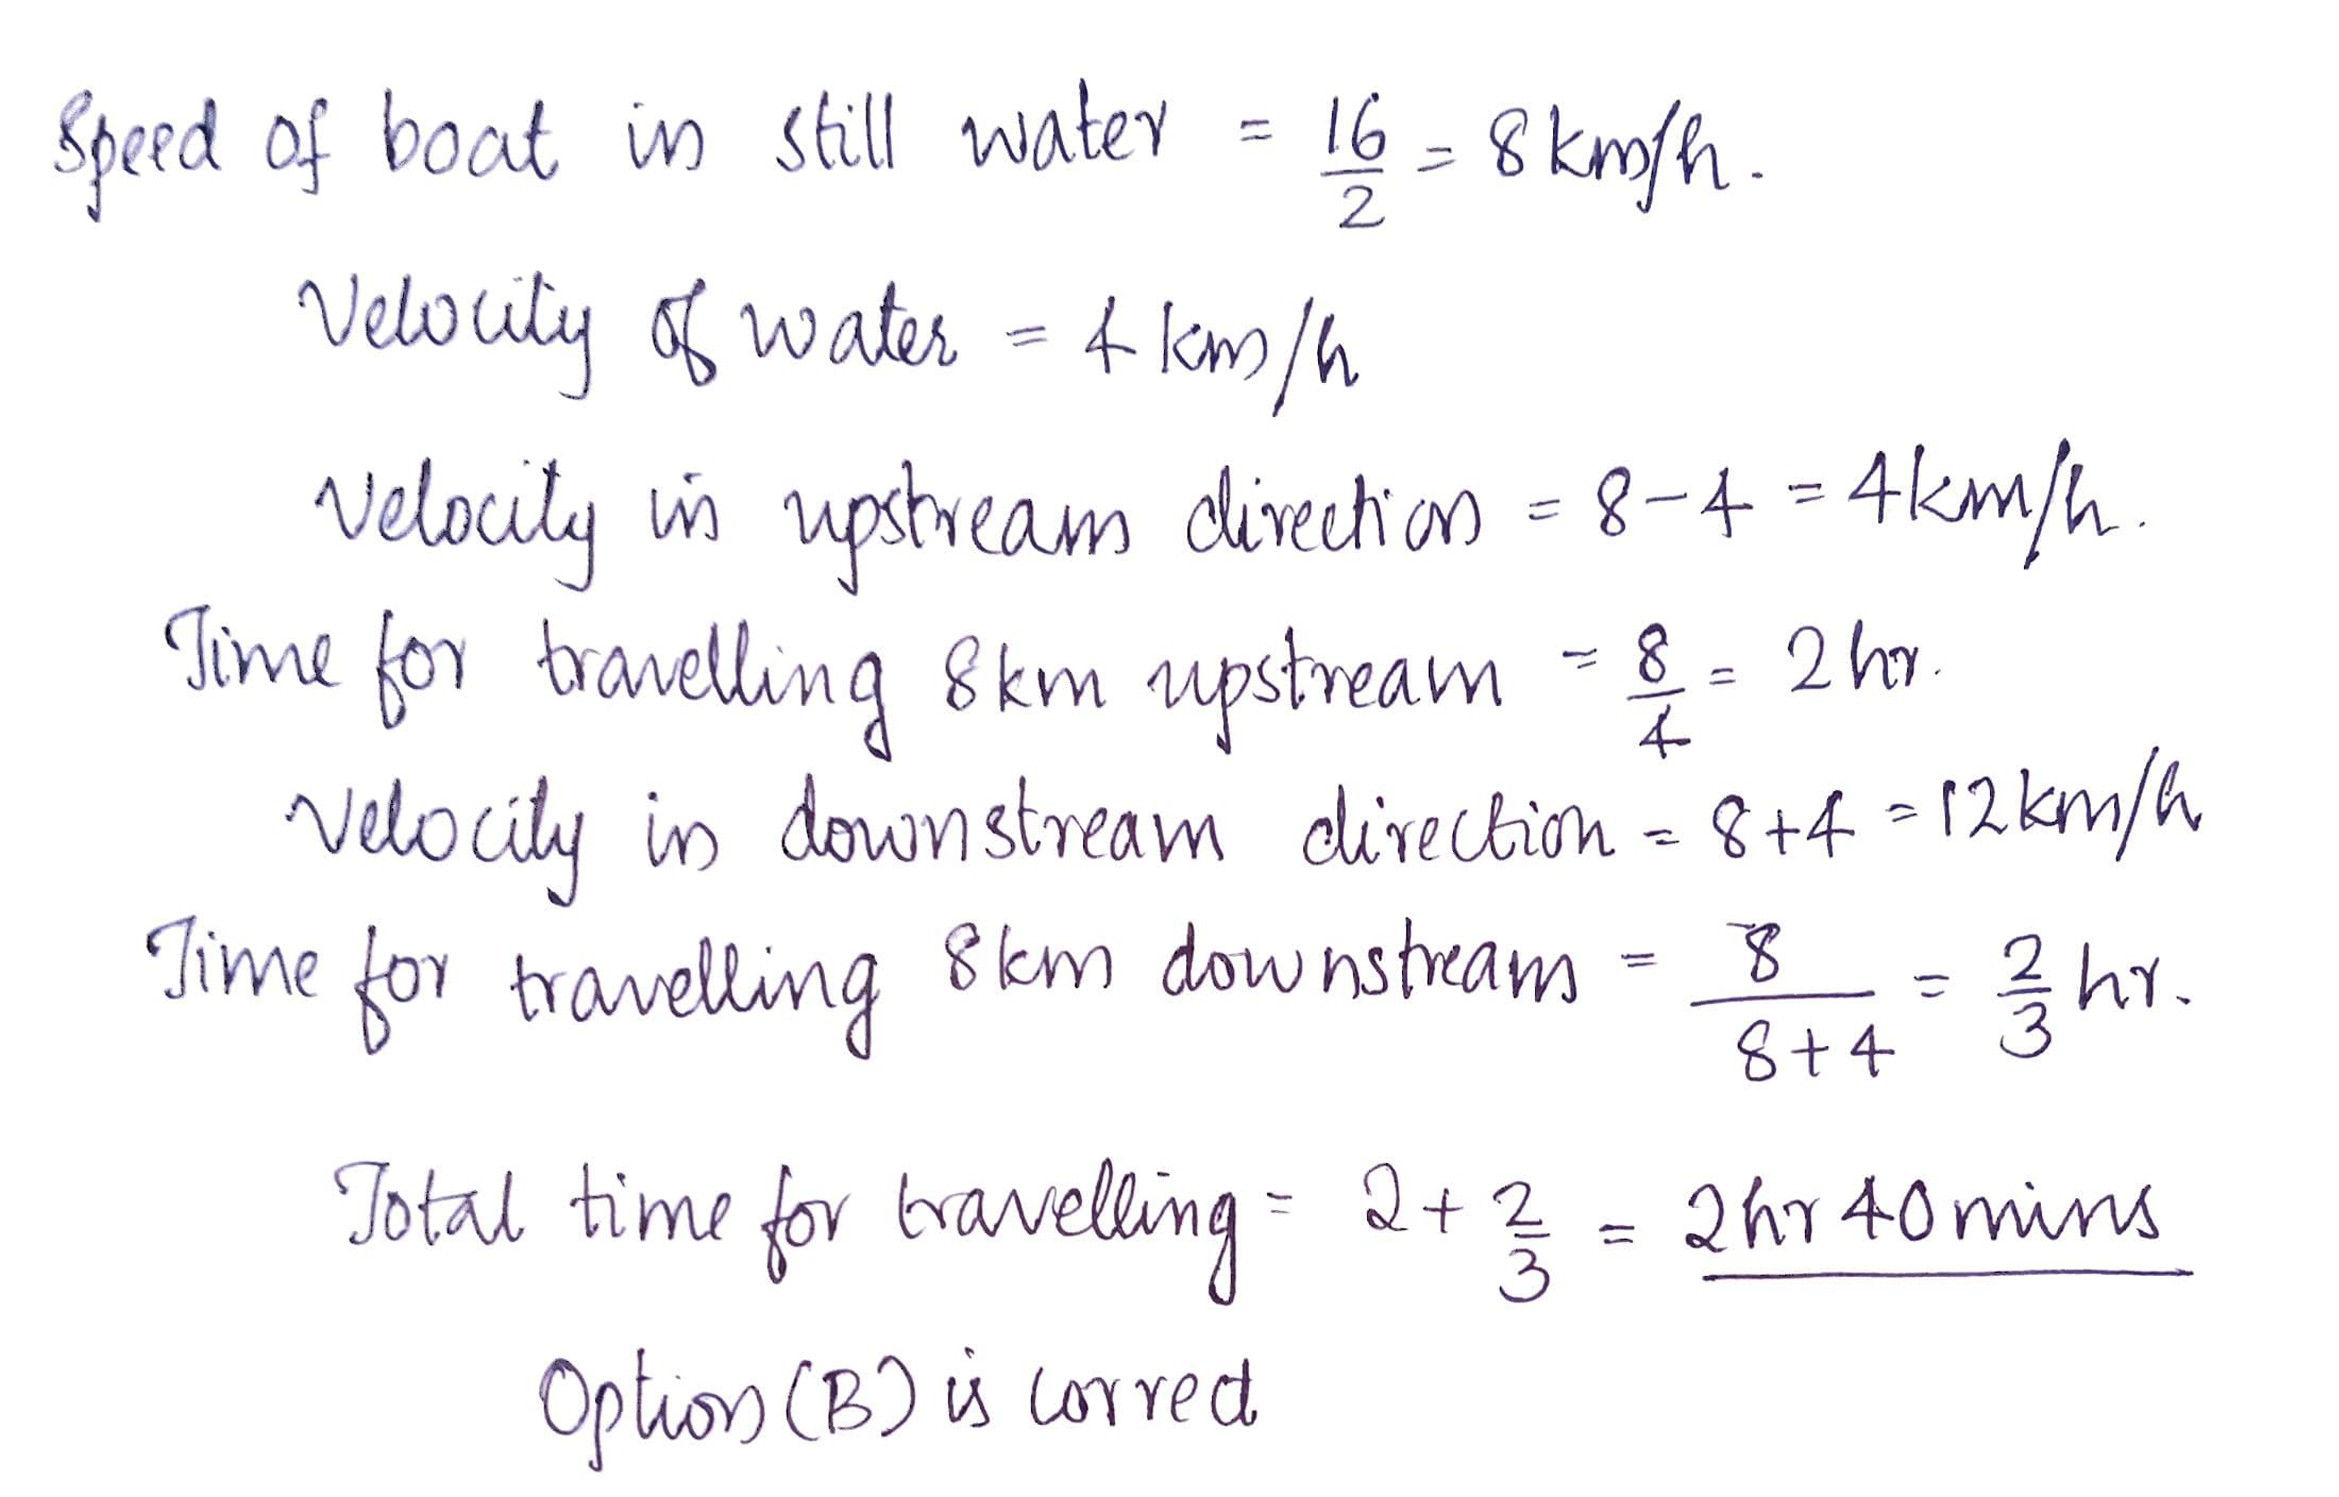 Speed of boat in still water = 16/2 = 8 km/h.
Velocity of water = 4 km/h
Velocity in upstream direction = 8-4 = 4km/h.
Time for travelling 8km upstream = 8/4 = 2 hr.
Velocity in downstream direction = 8+4 = 12km/h
Time for travelling 8km downstream = 8/(8+4) = 2/3 hr.
Total time for travelling = 2 + 2/3 = 2hr 40 mins
Option (B) is correct